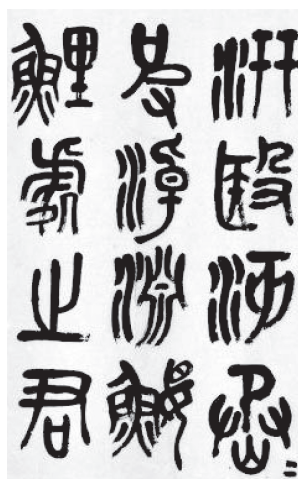 汧殹沔丞〻
皮淖淵鰋
鯉處之君